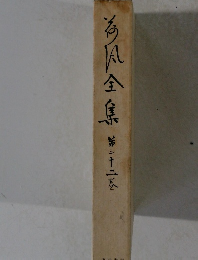 荷风全集
第二十二巻